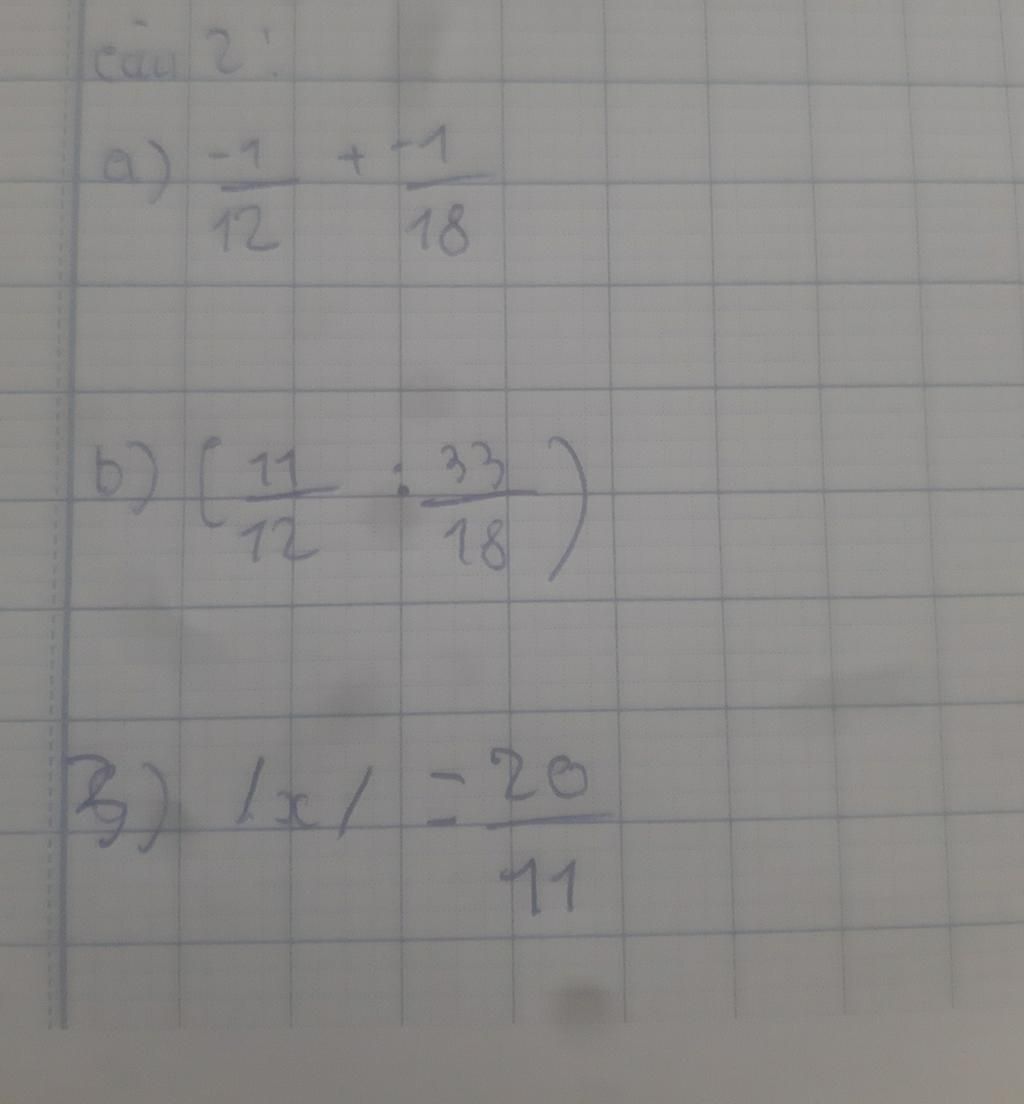 câu 2:
a) -1/12 + -1/18
b) (11/12 : 33/18)
3) |x| = 20/11